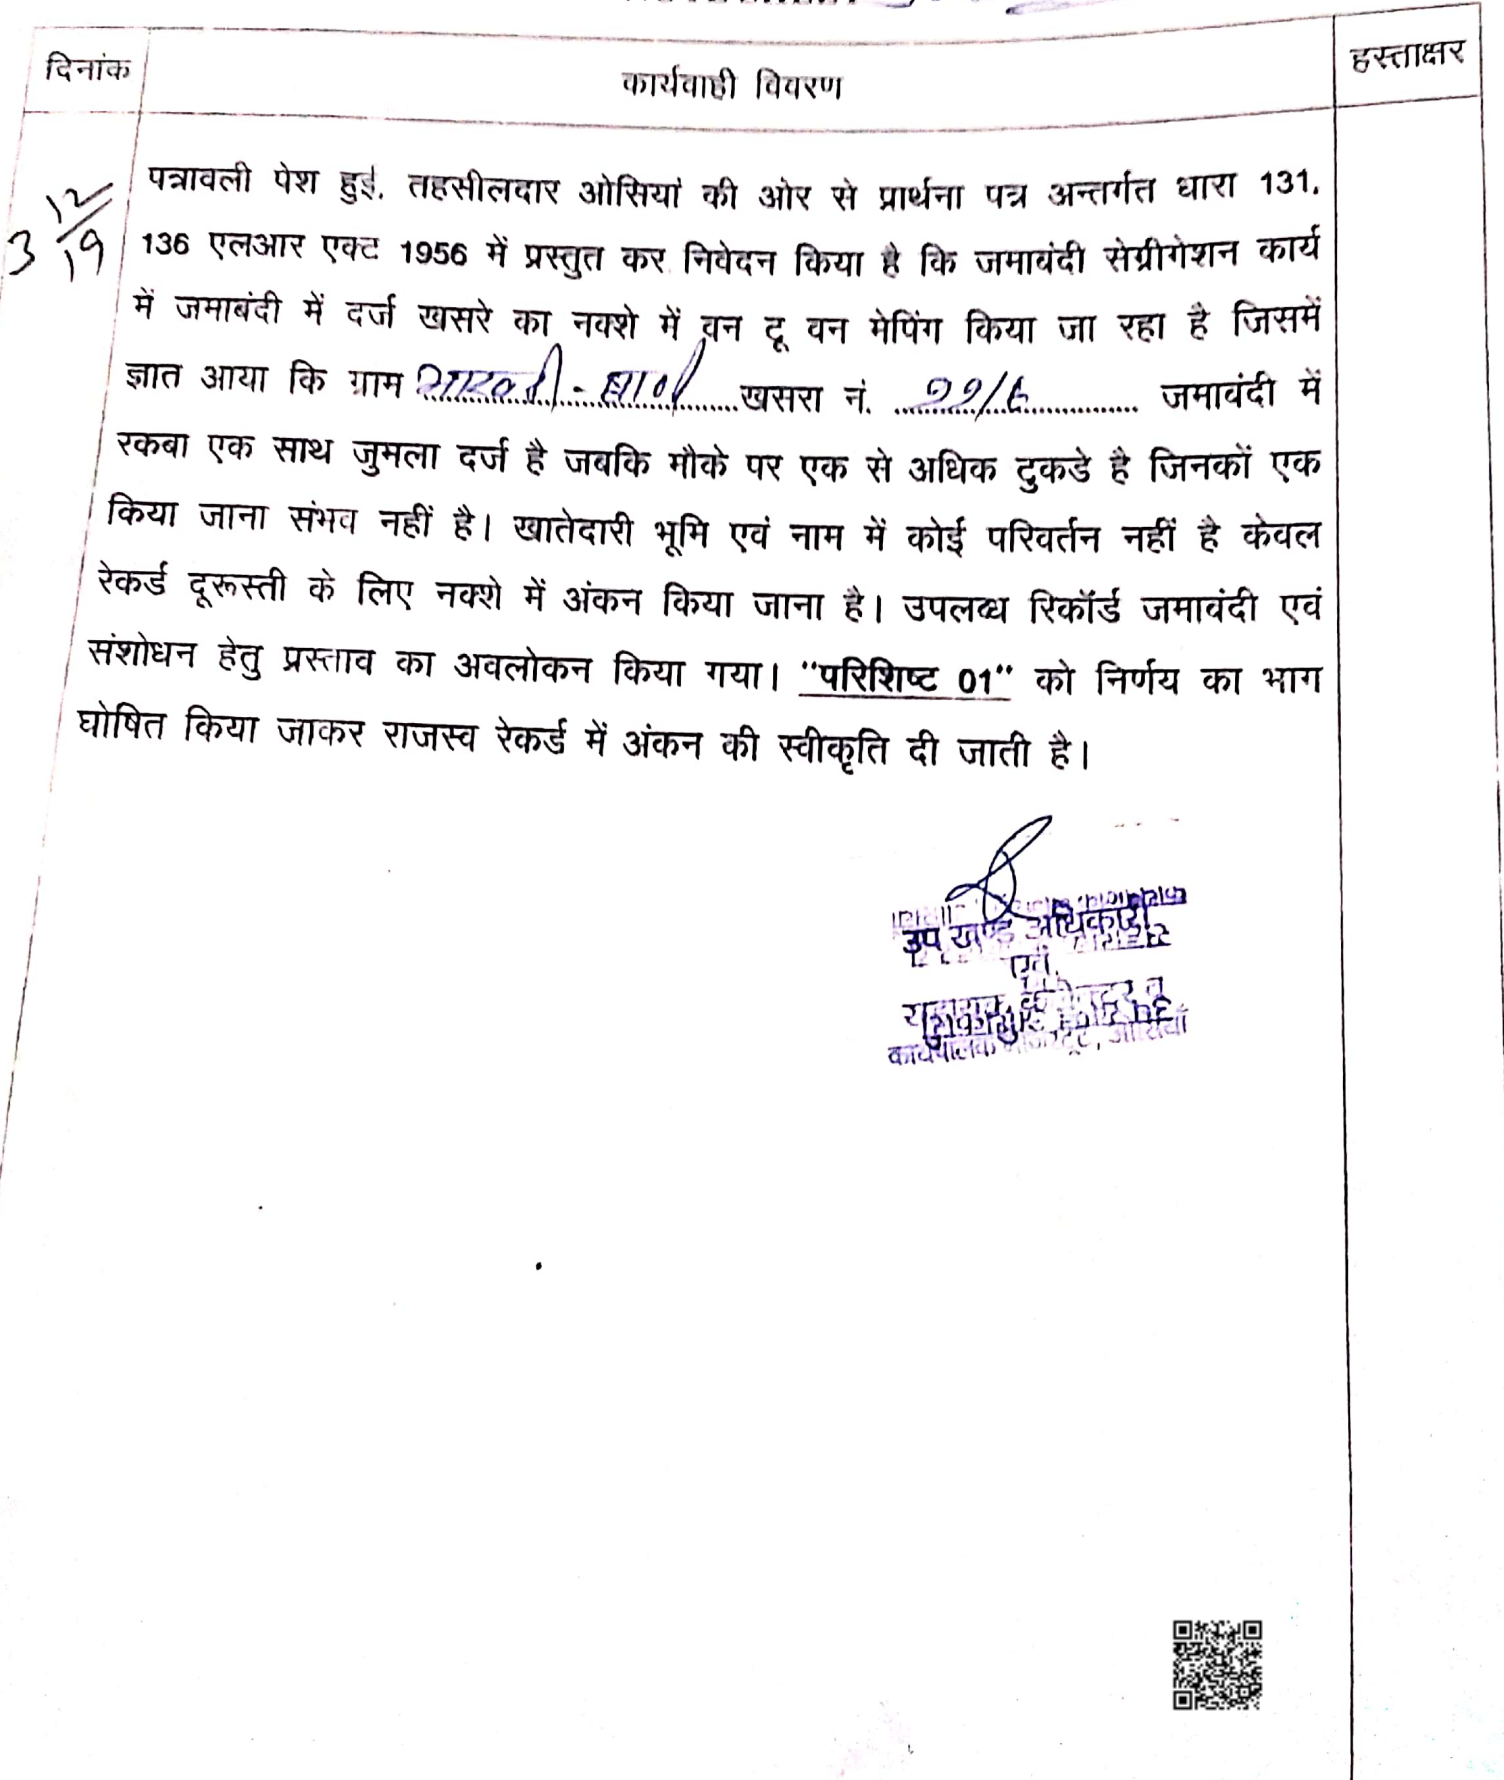 दिनांक
कार्यवाही विवरण
हस्ताक्षर
3 12/19
पत्रावली पेश हुई. तहसीलदार ओसियां की ओर से प्रार्थना पत्र अन्तर्गत धारा 131,
136 एलआर एक्ट 1956 में प्रस्तुत कर निवेदन किया है कि जमाबंदी सेग्रीगेशन कार्य
में जमाबंदी में दर्ज खसरे का नक्शे में वन टू वन मेपिंग किया जा रहा है जिसमें
ज्ञात आया कि ग्राम खसरा नं. 99/6 जमाबंदी में
रकबा एक साथ जुमला दर्ज है जबकि मौके पर एक से अधिक टुकडे है जिनकों एक
किया जाना संभव नहीं है। खातेदारी भूमि एवं नाम में कोई परिवर्तन नहीं है केवल
रेकर्ड दूरूस्ती के लिए नक्शे में अंकन किया जाना है। उपलब्ध रिकॉर्ड जमाबंदी एवं
संशोधन हेतु प्रस्ताव का अवलोकन किया गया। "परिशिष्ट 01" को निर्णय का भाग
घोषित किया जाकर राजस्व रेकर्ड में अंकन की स्वीकृति दी जाती है।
उप खण्ड अधिकारी
एवं
कार्यपालक ओसियाँ